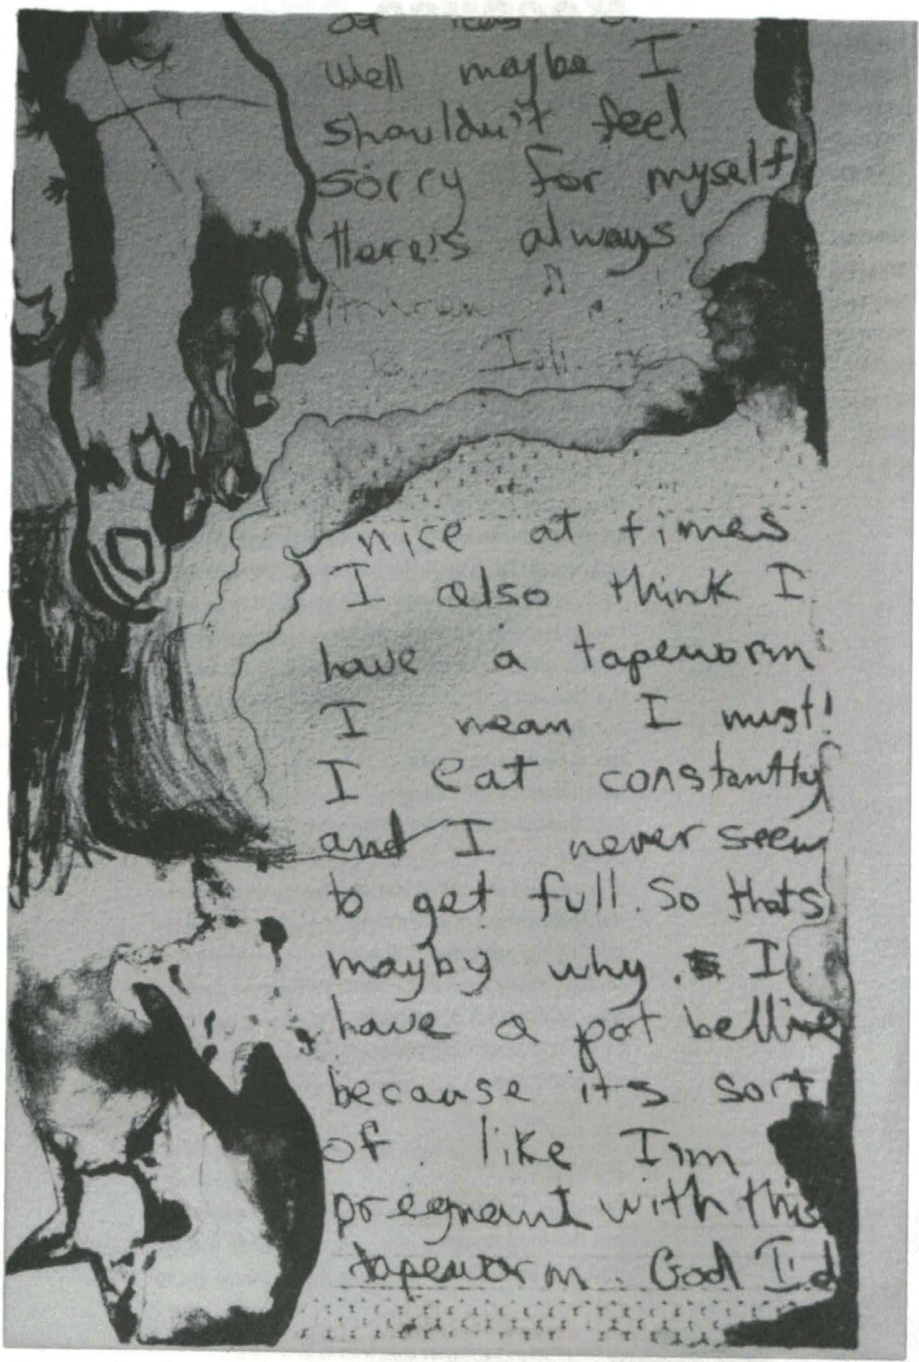 Well maybe I
shouldn't feel
sorry for myself
there's always
nice at times
I also think I
have a tapeworm
I mean I must!
I eat constantly
and I never seem
to get full. So thats
mayby why I
have a pot bellie
because its sort
of like I'm
pregnant with this
tapeworm. God I'd